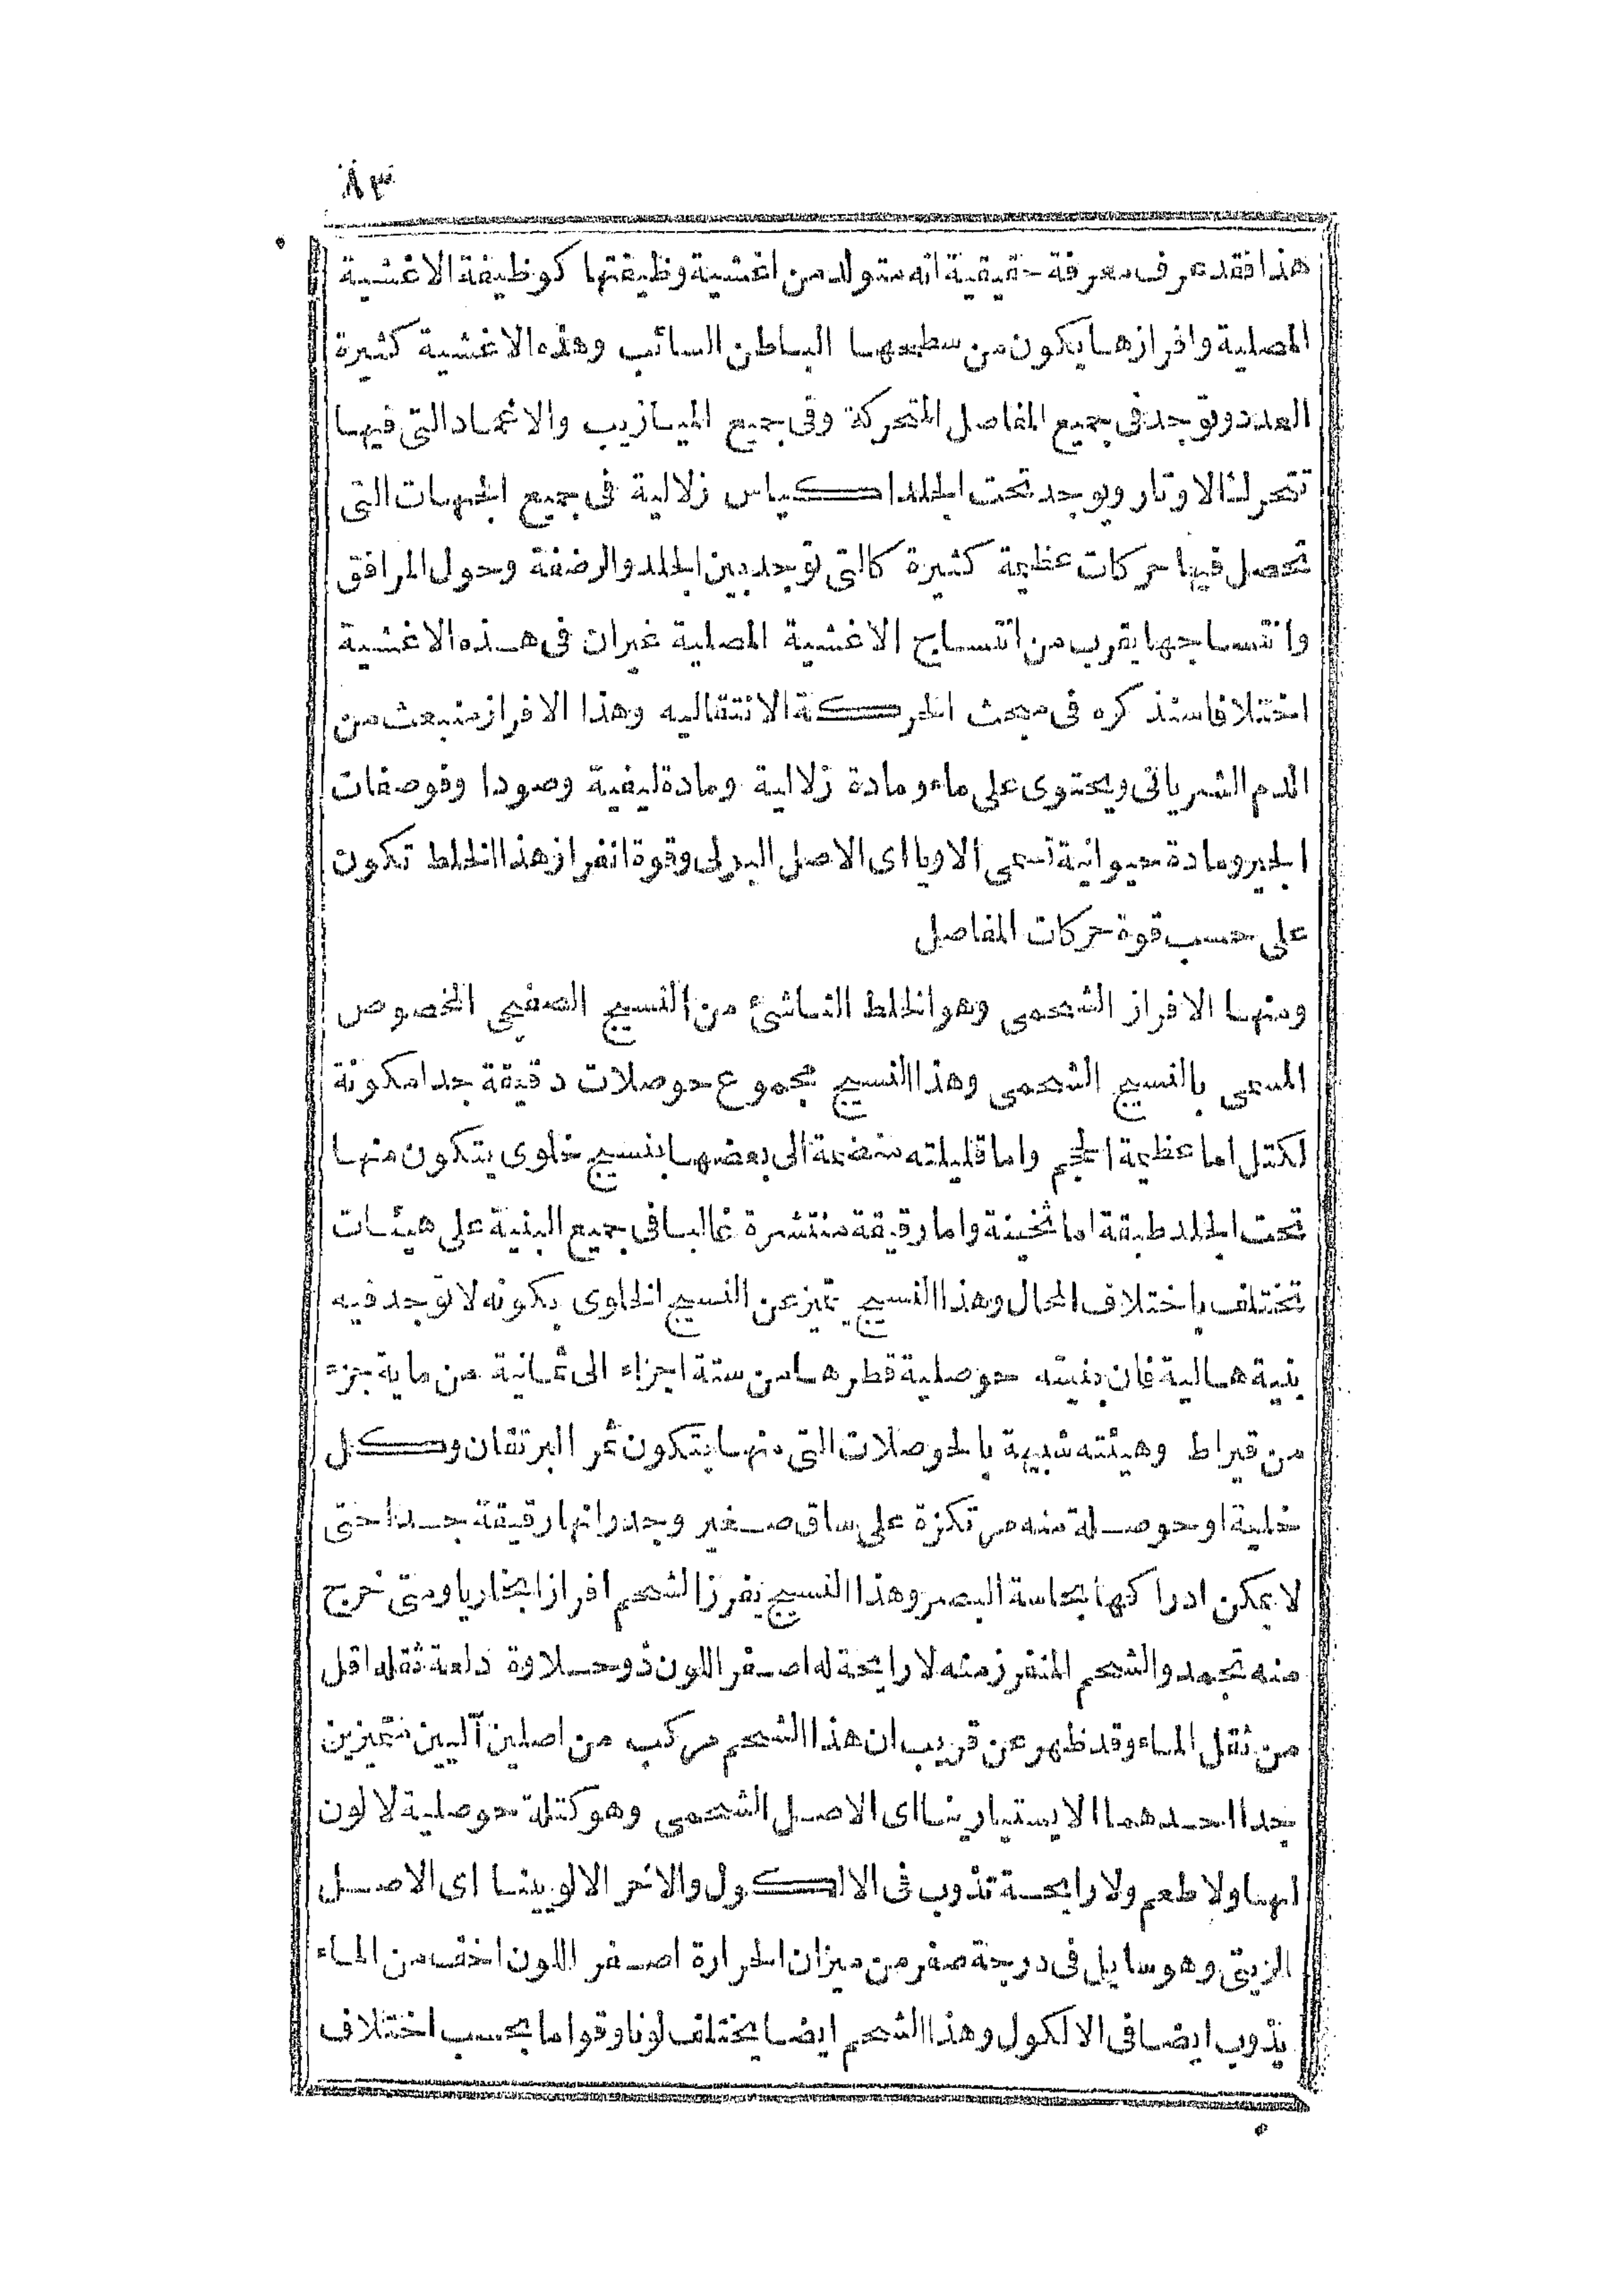 ٨٣
هذا فقد عرف معرفة حقيقية انه متولد من اغشية وظيفتها كوظيفة الاغشية
المصلية وافرازها يكون من سطحها الباطن السائب وهذه الاغشية كثيرة
العدد وتوجد فى جميع المفاصل المتحركة وفى جميع الميازيب والاغماد التى فيها
تتحرك الاوتار ويوجد تحت الجلد اكياس زلالية فى جميع الجهات التى
تحصل فيها حركات عظيمة كثيرة كالتى توجد بين الجلد والرضفة وحول المرافق
وانتساجها يقرب من انتساج الاغشية المصلية غيران فى هذه الاغشية
اختلافا سنذكره فى مبحث الحركة الانتقاليه وهذا الافراز منبعث من
الدم الشريانى ويحتوى على ماء ومادة زلالية ومادة ليفية وصودا وفوصفات
الجير ومادة حيوانية تسمى الاوريا اى الاصل البولى وقوة انفراز هذا الخلط تكون
على حسب قوة حركات المفاصل
ومنها الافراز الشحمى وهو الخلط الناشئ من النسيج الصفيحى المخصوص
المسمى بالنسيج الشحمى وهذا النسيج مجموع حوصلات دقيقة جدا مكونة
لكتل اما عظيمة الحجم واما قليلته منضمة الى بعضها بنسيج خلوى يتكون منها
تحت الجلد طبقة اما ثخينة واما رقيقة منتشرة غالبا فى جميع البنية على هيئات
تختلف باختلاف المحال وهذا النسيج يتميز عن النسيج الخلوى بكونه لا توجد فيه
بنية هالية فان بنيته حوصلية قطرها من ستة اجزاء الى ثمانية من ماية جزء
من قيراط وهيئته شبيهة بالحوصلات التى منها يتكون ثمر البرتقان وكل
خلية او حوصلة منه مرتكزة على ساق صغير وجدرانها رقيقة جدا حتى
لا يمكن ادراكها بحاسة البصر وهذا النسيج يفرز الشحم افرازا بخاريا ومتى خرج
منه تجمد والشحم المنفرز منه لا رايحة له اصفر اللون ذو حلاوة دلعة ثقله اقل
من ثقل الماء وقد ظهر عن قريب ان هذا الشحم مركب من اصلين آليين متميزين
جدا احدهما الايستيارينا اى الاصل الشحمى وهو كتلة حوصلية لا لون
لها ولا طعم ولا رايحة تذوب فى الالكول والاخر الالويينا اى الاصل
الزيتى وهو سايل فى درجة صفر من ميزان الحرارة اصفر اللون اخف من الماء
يذوب ايضا فى الالكول وهذا الشحم ايضا يختلف لونا وقواما بحسب اختلاف